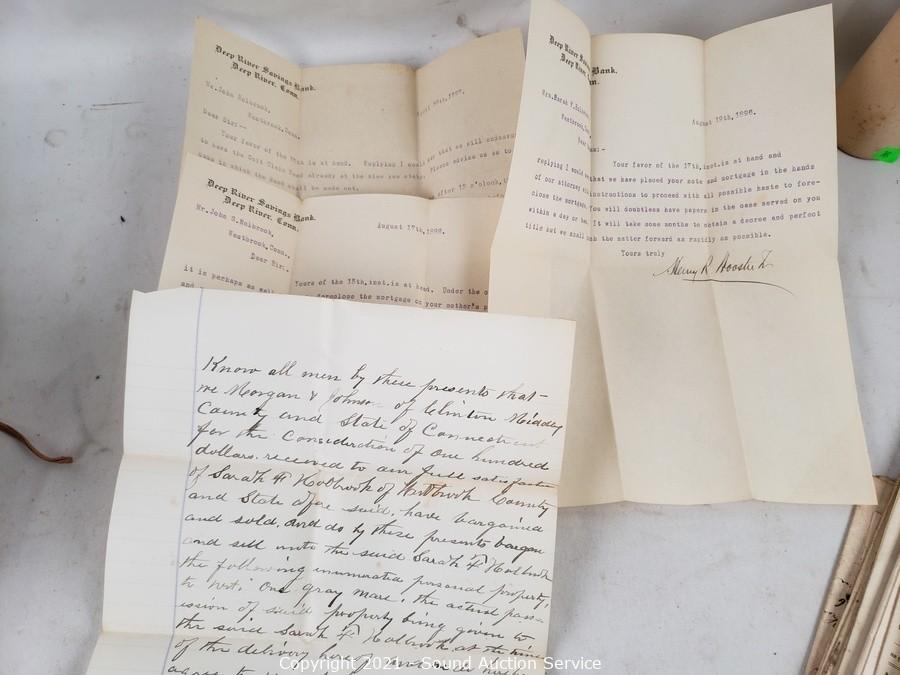 Deep River Savings Bank.
Deep River, Conn.
April 28th, 1898.
Mr. John Holbrook,
Westbrook, Conn.
Dear Sir:--
Your favor of the is at hand. Replying I would that
Please advise us as to
name in which the deed shall be made out.
after 12 o'clock,
Deep River Savings Bank.
Deep River, Conn.
August 17th, 1898.
Mr. John S. Holbrook,
Westbrook, Conn.,
Dear Sir:
Yours of the 15th, inst. is at hand. Under the
it is perhaps as well
foreclose the mortgage on your mother's
Deep River
Bank.
Deep River
August 19th, 1898.
Mrs. Sarah F.
Westbrook,
Dear
Your favor of the 17th, inst. is at hand and
replying I would that we have placed your note and mortgage in the hands
of our attorney with instructions to proceed with all possible haste to fore-
close the mortgage. You will doubtless have papers in the case served on you
within a day or two. It will take some months to obtain a decree and perfect
title but we shall push the matter forward as rapidly as possible.
Yours truly
Henry R. Wooster
Know all men by these presents that-
we Morgan & Johnson of Clinton Middlx
County and State of Connecticut
for the Consideration of One hundred
dollars. received to our full satisfaction
of Sarah F Holbrook of Westbrook County
and State afore said, have bargained
and sold, and do by these presents bargan
and sell unto the said Sarah F Holbrook
the following enumerated personal property,
to wit: One gray mare, the actual poss-
ession of said property being given to
the said Sarah F Holbrook, at the time
of the delivery
Copyright 2021 - Sound Auction Service